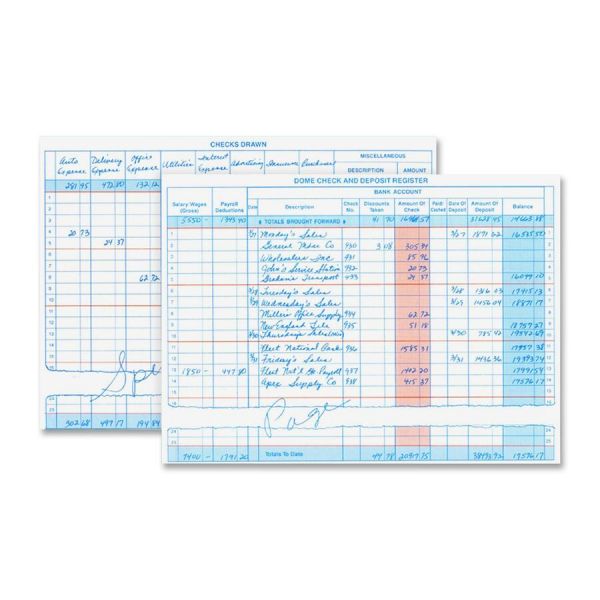 CHECKS DRAWN
MISCELLANEOUS
Auto Expense Delivery Expense Office Expense Utilities Interest Expense Advertising Insurance Purchases DESCRIPTION AMOUNT
281.95 472.80 132.12
20 73
24 37
62 72
302.68 497.17 194.84
DOME CHECK AND DEPOSIT REGISTER
BANK ACCOUNT
Salary Wages (Gross) Payroll Deductions Date Description Check No. Discounts Taken Amount Of Check Paid/Cashed Date Of Deposit Amount Of Deposit Balance
5550 - 1343.40 TOTALS BROUGHT FORWARD 41 70 16968.57 31628 45 14663.88
Monday's Sales 3/27 1871 62 16535.50
General Mdse Co 930 3 08 305.84
Wholesalers Inc 931 85 96
John's Service Station 932 20 73
Graham's Transport 933 24 37 16099 10
Tuesday's Sales 3/28 1316 03 17415.13
Wednesday's Sales 3/29 1456 04 18871 17
Miller's Office Supply 934 62 72
New England Tile 935 51 18 18757.27
Thursday's Sales 3/30 785.42 19542.69
Fleet National Bank 936 1585.31 17957.38
Friday's Sales 3/31 1436 36 19393.74
1850 - 447.80 Fleet Nat'l Bk Payroll 937 1402.20 17991.54
Apex Supply Co 938 415.37 17576.17
Page
7400 - 1791.20 Totals To Date 44.78 20917.75 38493.92 17576.17